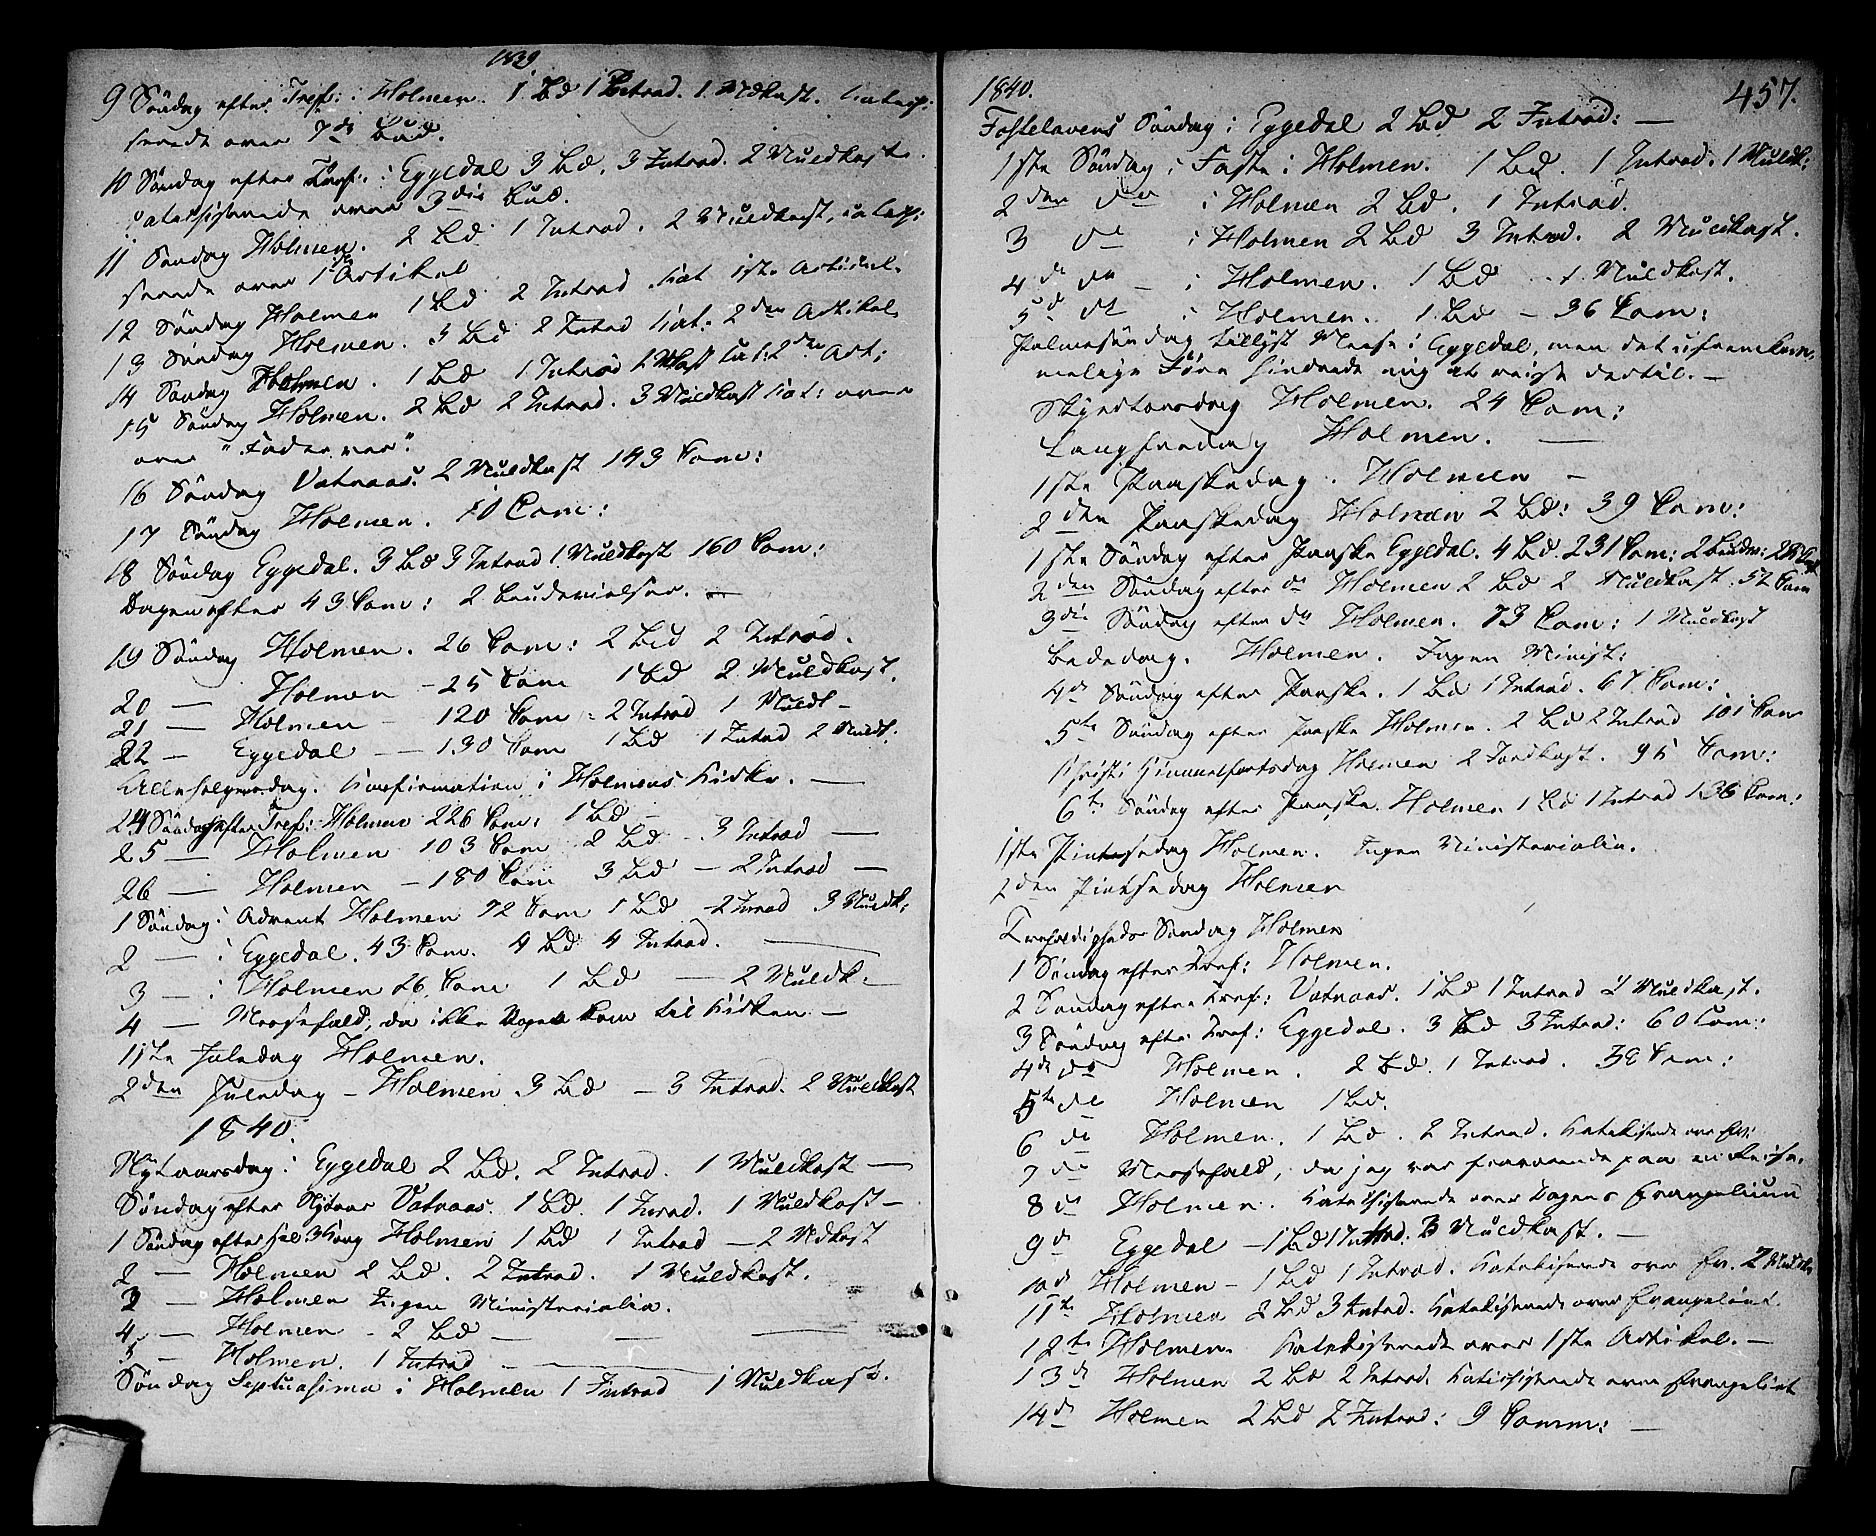 1839
9 Söndag efter Tref: i Holmen. 1 Bd 1 Introd. 1 Mldkast. Catechi:
serede over 7de Bud.
10 Söndag efter Tref: i Eggedal 3 Bd. 3 Introd. 2 Muldkast.
Catechiserede over 3die Bud.
11 Söndag Holmen. 2 Bd 1 Introd. 2 Muldkast, catechi:
serede over 1ste Artikel
12 Söndag Holmen 1 Bd 2 Introd. Kat 1ste Artikel.
13 Söndag Holmen. 3 Bd 2 Introd Kat: 2den Artikel
14 Söndag Holmen. 1 Bd 1 Introd 1 Mkast Kat: 2den Art:
15 Söndag Holmen. 2 Bd 2 Introd. 3 Muldkast Kat: over
over "Fader vor".
16 Söndag Vatnaas. 2 Muldkast 193 Com:
17 Söndag Holmen. 10 Com:
18 Söndag Eggedal. 3 Bd 3 Introd 1 Muldkast 160 Com:
Dagen efter 43 Com: 2 Brudevielser. —
19 Söndag Holmen. 26 Com: 2 Bd 2 Introd.
20 — Holmen – 25 Com 1 Bd 2 Muldkast.
21 — Holmen – 120 Com – 2 Introd 1 Muldk –
22 — Eggedal — 130 Com 1 Bd 1 Introd 2 Muldk:
Allehelgensdag. Konfirmation i Holmens Kirke. —
24 Söndag efter Tref: Holmen 226 Com: 1 Bd –
25 — Holmen 103 Com 2 Bd – 3 Introd —
26 — Holmen – 180 Com 3 Bd – 2 Introd —
1 Söndag i Advent Holmen 72 Com 1 Bd – 2 Introd 3 Muldk:
2 — i Eggedal. 43 Com. 4 Bd 4 Introd. —
3 — i Holmen 26 Com 1 Bd — 2 Muldk: —
4 — Messefald, da ikke Nogen kom til Kirken —
1ste Juledag Holmen.
2den Juledag – Holmen 3 Bd – 3 Introd. 2 Muldkast
1840.
Nytaarsdag i Eggedal 2 Bd. 2 Introd. 1 Muldkast —
Söndag efter Nytaar Vatnaas. 1 Bd. 1 Introd. 1 Muldkast –
1 Söndag efter hel 3 Kong Holmen 1 Bd 1 Introd – 2 Mdkast
2 — Holmen 2 Bd. 2 Introd. 1 Muldkast.
3 — Holmen Ingen Ministerialia.
4 — Holmen – 2 Bd — — —
5 — Holmen. 1 Introd – —
Söndag Septuasima i Holmen 1 Introd 1 Muldkast.
1840.
457.
Fastelavens Söndag i Eggedal 2 Bd 2 Introd: —
1ste Söndag i Faste i Holmen. 1 Bd. 1 Introd. 1 Muldk:
2den do i Holmen 2 Bd. 1 Introd.
3 do i Holmen 2 Bd 3 Introd. 2 Muldkast.
4de do – i Holmen. 1 Bd – 1 Muldkast.
5de do i Holmen. 1 Bd – 36 Com:
Palmesöndag tillyst Messe i Eggedal, men det ufremkom-
melige Före hindrede mig at reise dertil. —
Skjærtorsdag Holmen. 24 Com:
Langfredag Holmen. —
1ste Paaskedag. Holmen –
2den Paaskedag Holmen 2 Bd: 39 Com:
1ste Söndag efter Paaske Eggedal. 4 Bd. 231 Com: 2 Brudev:
2den Söndag efter do Holmen 2 Bd 2 Muldkast. 52 Com
3die Söndag efter do Holmen. 73 Com: 1 Muldkast
Bededag. Holmen. Ingen Minist:
4de Söndag efter Paaske. 1 Bd 1 Introd. 67 Com:
5te Söndag efter Paaske Holmen. 2 Bd 2 Introd 101 Com
Christi Himmelfartsdag Holmen 2 Jordkast. 95 Com:
6te Söndag efter Paaske Holmen 1 Bd 1 Introd 136 Com:
1ste Pintsedag Holmen. Ingen Ministerialia.
2den Pintsedag Holmen
Trefoldigheds Söndag Holmen
1 Söndag efter Tref: Holmen.
2 Söndag efter Tref: Vatnaas. 1 Bd 1 Introd 2 Muldkast.
3 Söndag efter Tref: Eggedal. 3 Bd 3 Introd: 60 Com:
4de do Holmen. 2 Bd. 1 Introd. 38 Com:
5te do Holmen 1 Bd.
6 do Holmen. 1 Bd. 2 Introd. Katekiserede over Ev:
7 do Messefald, da jeg var fraværende paa en Reise.
8 do Holmen. Katechiserede over Dagens Evangelium
9de Eggedal – 1 Bd 1 Introd. 3 Muldkast. —
10de Holmen – 1 Bd 1 Introd. Katekiserede over Ev. 2 Muldk
11te Holmen 2 Bd 3 Introd. Katekiserede over Evangeliet
12te Holmen. Katekiserede over 1ste Artikel. —
13de Holmen 2 Bd 2 Introd Katechiserede over Evangeliet
14de Holmen 2 Bd 2 Introd: 9 Comm: —